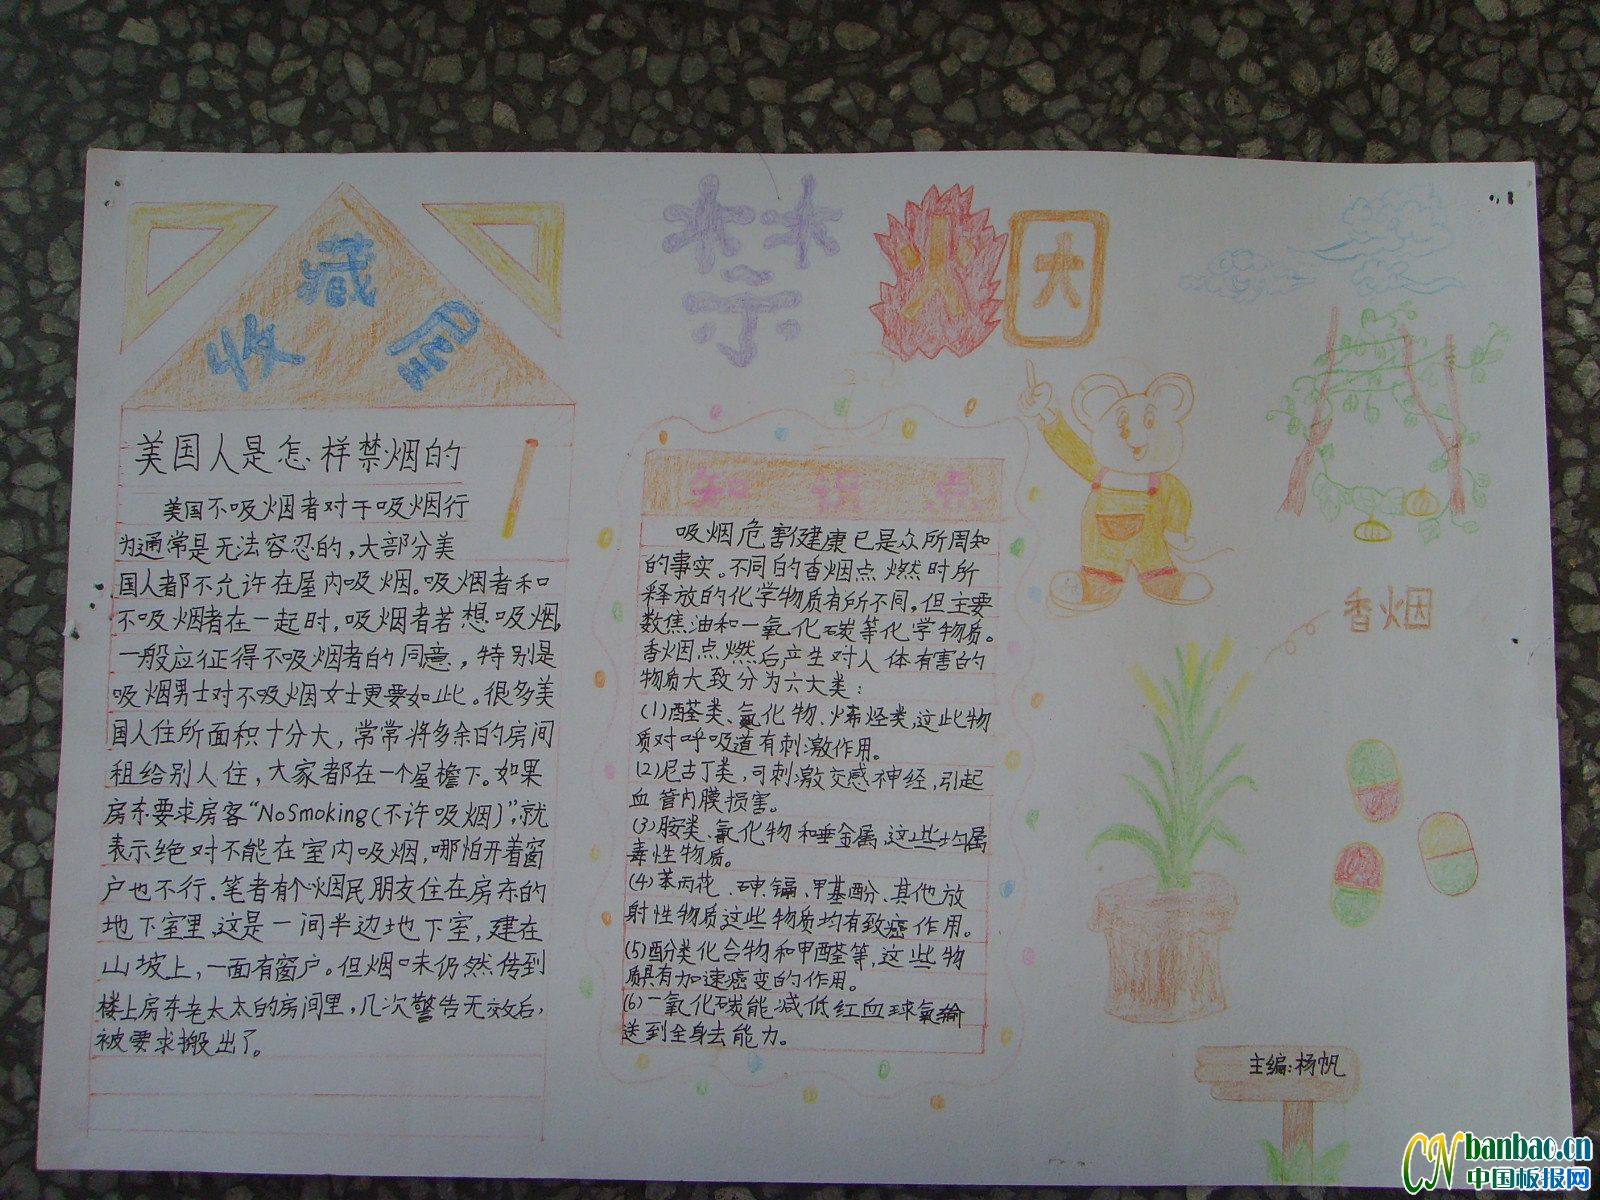 收藏屋
美国人是怎样禁烟的
美国不吸烟者对于吸烟行
为通常是无法容忍的，大部分美
国人都不允许在屋内吸烟。吸烟者和
不吸烟者在一起时，吸烟者若想吸烟，
一般应征得不吸烟者的同意，特别是
吸烟男士对不吸烟女士更要如此。很多美
国人住所面积十分大，常常将多余的房间
租给别人住，大家都在一个屋檐下。如果
房东要求房客“No Smoking（不许吸烟）”，就
表示绝对不能在室内吸烟，哪怕开着窗
户也不行。笔者有个烟民朋友住在房东的
地下室里，这是一间半边地下室，建在
山坡上，一面有窗户。但烟味仍然传到
楼上房东老太太的房间里，几次警告无效后，
被要求搬出了。
禁烟
知识点
吸烟危害健康已是众所周知
的事实。不同的香烟点燃时所
释放的化学物质有所不同，但主要
数焦油和一氧化碳等化学物质。
香烟点燃后产生对人体有害的
物质大致分为六大类：
(1)醛类、氮化物、烯烃类，这些物
质对呼吸道有刺激作用。
(2)尼古丁类，可刺激交感神经，引起
血管内膜损害。
(3)胺类、氰化物和重金属，这些均属
毒性物质。
(4)苯丙芘、砷、镉、甲基酚、其他放
射性物质这些物质均有致癌作用。
(5)酚类化合物和甲醛等，这些物
质具有加速癌变的作用。
(6)一氧化碳能减低红血球氧输
送到全身去能力。
香烟
主编：杨帆
CN banbao.cn
中国板报网